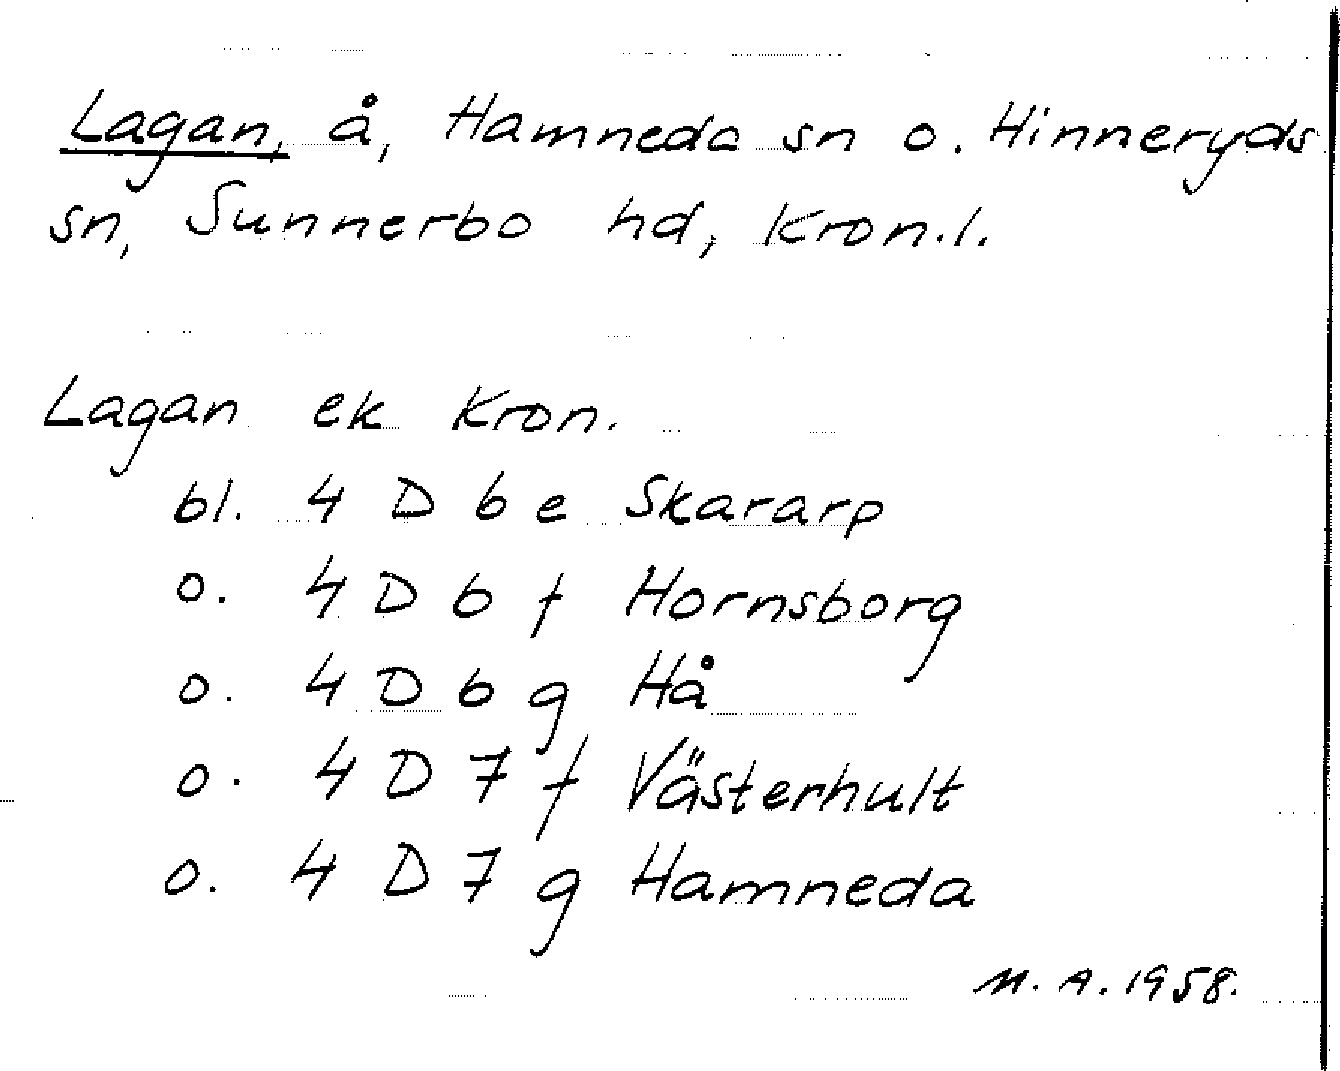 Lagan, å, Hamneda sn o. Hinneryds
sn, Sunnerbo hd, Kron.l.
Lagan ek Kron.
bl. 4 D 6 e Skararp
o. 4 D 6 f Hornsborg
o. 4 D 6 g Hå
o. 4 D 7 f Västerhult
o. 4 D 7 g Hamneda
M. A. 1958.